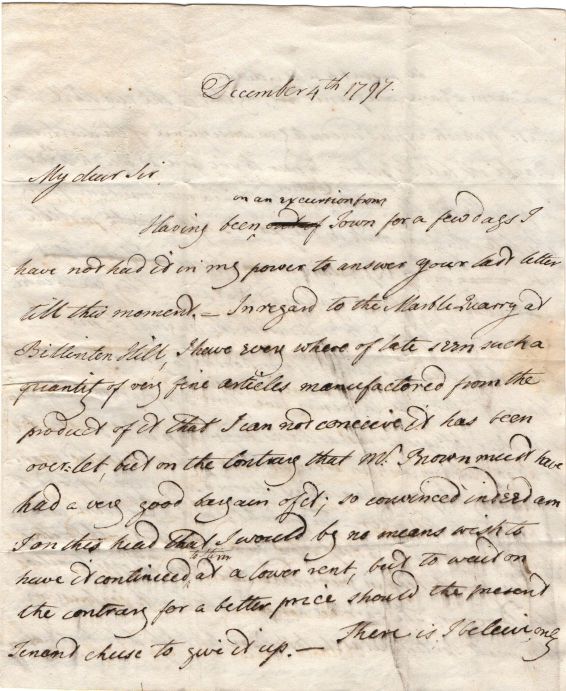 December 4th 1797.
My dear Sir
on an excursion from
Having been out of Town for a few days I
have not had it in my power to answer your last letter
till this moment. – In regard to the Marble Quarry at
Billinton Hill, I have every where of late seen such a
quantity of very fine articles manufactored from the
product of it that I can not conceive it has been
over-let, but on the contrary that Mr. Brown must have
had a very good bargain of it; so convinced indeed am
I on this head that I would by no means wish to
to him
have it continued at a lower rent, but to wait on
the contrary for a better price should the present
Tenent chuse to give it up. –
There is I beleive only